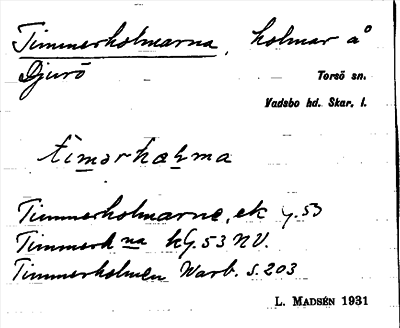 Timmerholmarna, holmar å
Djurö
Torsö sn.
Vadsbo hd. Skar. l.
timərhoɫma
Timmerholmarne, ek g. 53
Timmerh na kG. 53 NV.
Timmerholmen Warb. s. 203
L. MADSÉN 1931